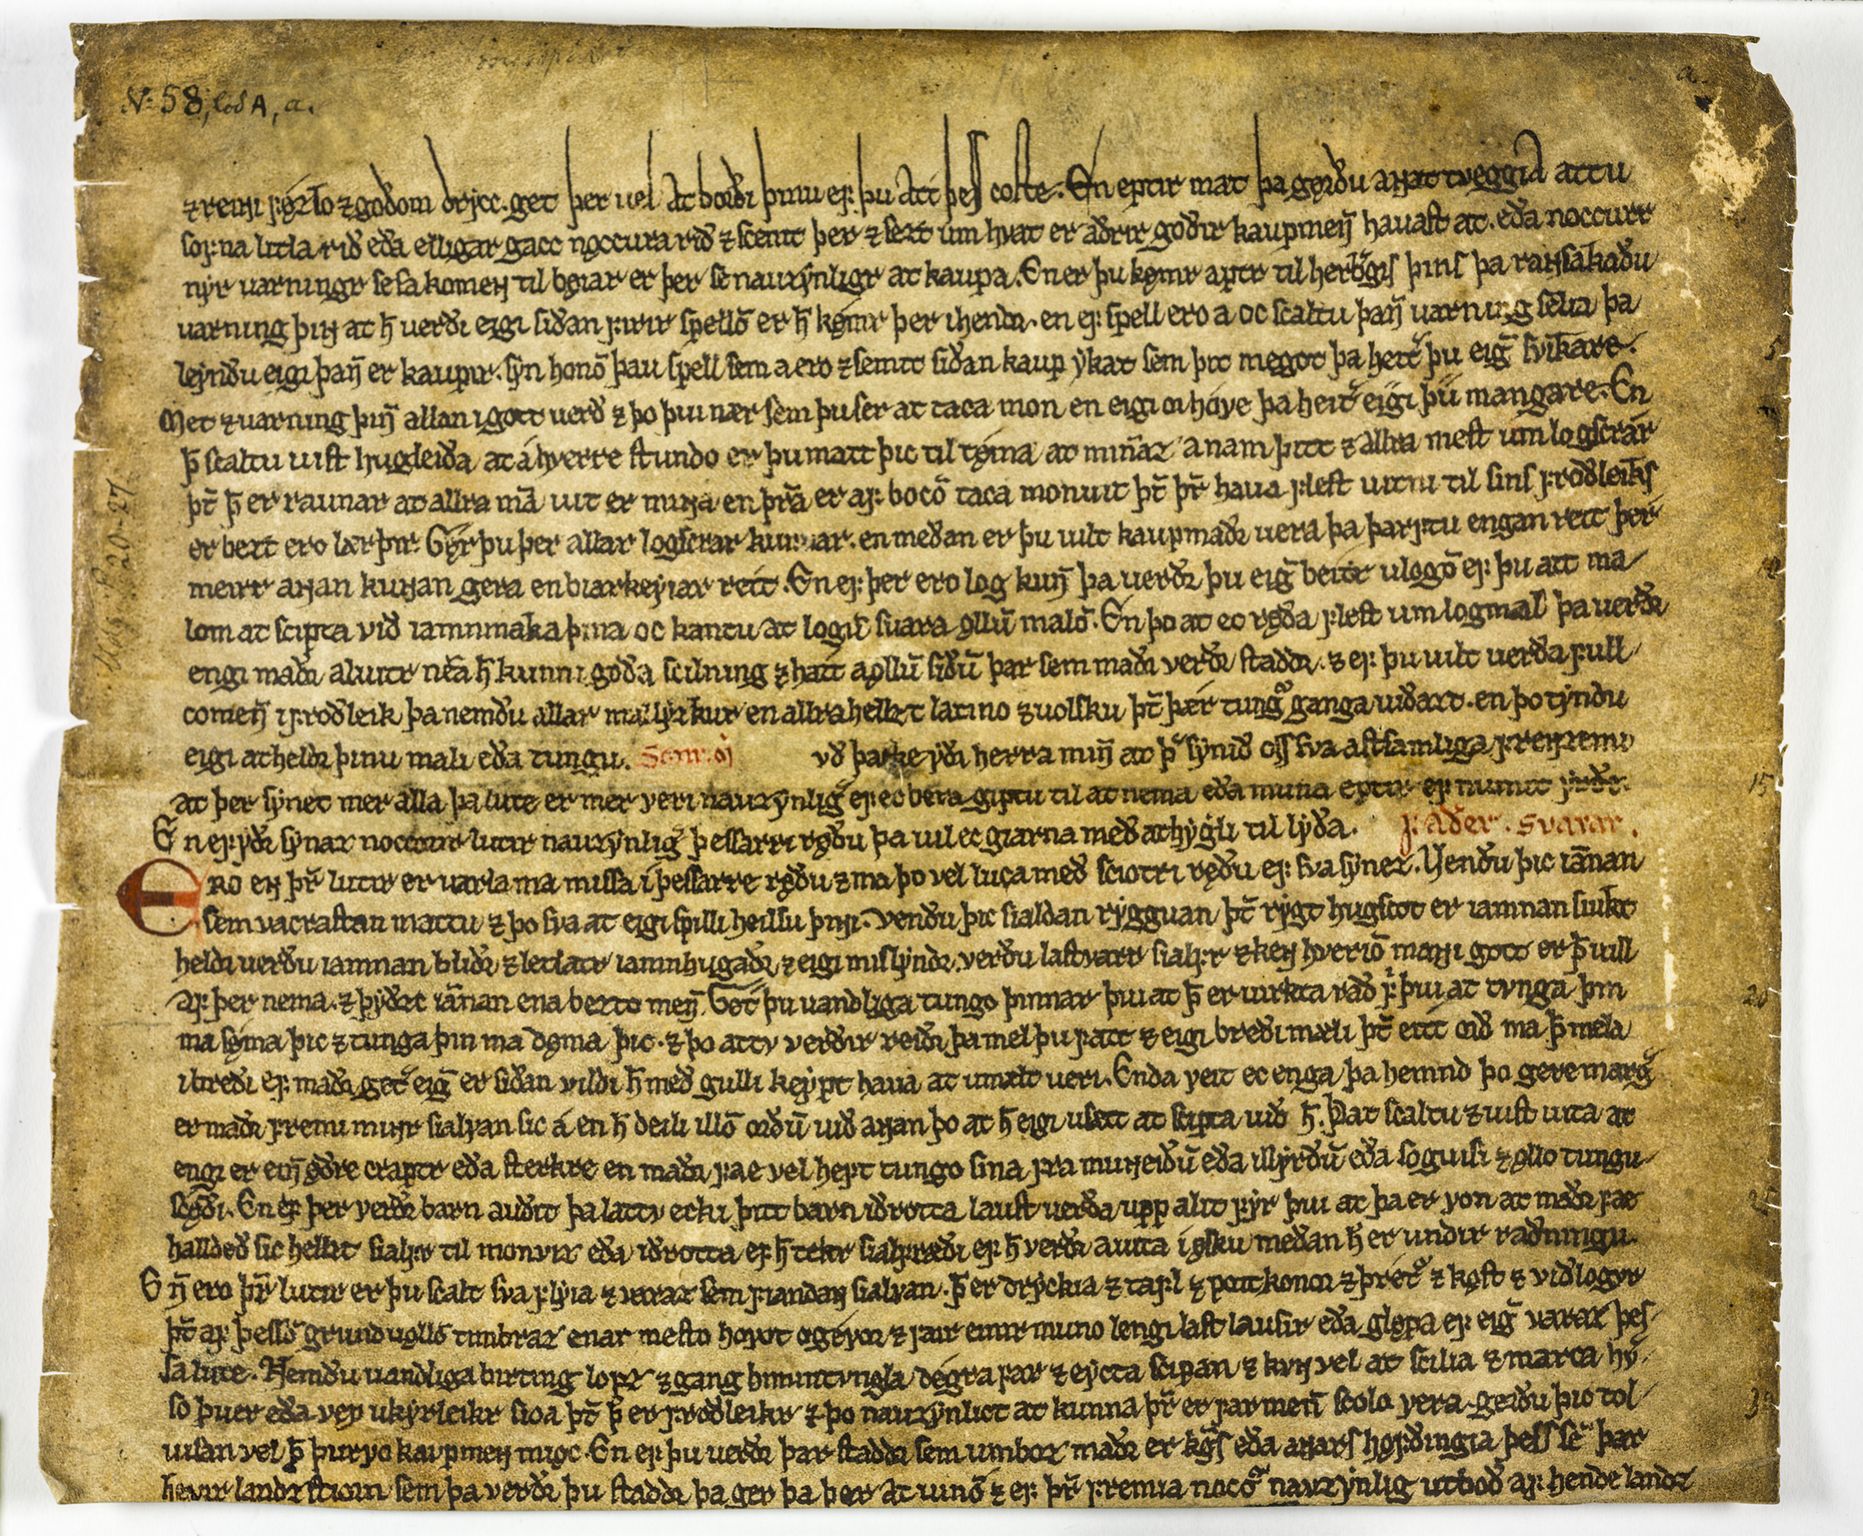 N: 58, cod A, a.
a.
⁊ reinſ ſęrlo ⁊ goðom drycc. get þer uel at borði þinu eꝼ þu átt þeſſ coſte. En eptir mat þa gęrðu annat tveggia at tu
ſoꝼna litla rið eða elligar gacc nǫccura rið ⁊ ſcemt þer ⁊ ſezt um hvat er aðrir goðir kaupmenn̄ havaſt at. eða noccurr
nyr varningr ſe ſa komenn til bǿiar er þer ſe nauzynligr at kaupa. En er þu kǿmr aptr til herbergiſ þinſ þa rannſakaðu
varning þinn at h̄ verði eigi ſiðan ꝼirir ſpellō er h̄ kǿmr þer i hendr. en eꝼ ſpell ero a oc ſcaltu þan̄ varning ſelia þa
leynðu eigi þan̄ er kaupir. ſyn honō þau ſpell ſem a ero ⁊ ſemit ſiðan kaup ykat ſem þit megot þa heitr þu eigi ſvikare.
Met ⁊ varning þin̄ allan i gott verð ⁊ þo þui nær ſem þu ſer at taca mon en eigi or hóꝼe þa heitr eigi þu mangare. En
þ̄ ſcaltu uiſt hugleiða at á hverre ſtundo er þu matt þic til tǿma at min̄az á nam þitt ⁊ allra meſt um logſcrár
þt̄ þ̄ er raunar at allra mā uit er minna en þrā er aꝼ bocō taca monuit þt̄ þr̄ haꝼa ꝼleſt uitni til ſinſ ꝼroðleikſ
er bezt ero lærþir. Gęr þu þer allar logſcrar kunnar. en meðan er þu uilt kaupmaðr vera þa þarꝼtu engan rett þer
meirr annan kunnan gera en biarkeyiar rett. En eꝼ þer ero log kun̄ þa uerðr þu eigi beittr ulogō eꝼ þu átt ma
lom at ſcipta við iamnmaka þina oc kantu at logū ſuara ǫllū malō. En þo at ec rǿða ꝼleſt um logmál þa uerðr
engi maðr aluitr nēa h̄ kunni goða ſcilning ⁊ hátt a ǫllū ſiðū þar ſem maðr verðr ſtaddr. ⁊ eꝼ þu uilt uerða ꝼull
comen̄ i ꝼroðleik þa nemðu allar mallyzkur en allra hellzt latino ⁊ volſku þt̄ þær tungor ganga uiðazt. en þo tyndu
eigi at heldr þinu mali eða tungu. Sonr. oj vð þacke yðr herra min̄ at þer ſynið oſſ ſva aſtſamliga ꝼrenſemi
at þer ſynet mer alla þa lute er mer veri nauzynligir eꝼ ec bera giptu til at nema eða muna eptir eꝼ numit yrðe.
En eꝼ yðr ſynaz noccorir lutir nauzynligir þeſſarri rǿðu þa uil ec giarna með athygli til lyða. ꝼaðer. ſvarar.
ERO enn þr̄ lutir er varla ma miſſa i þeſſarre rǿðu ⁊ ma þo vel luca með ſciotri rǿðu eꝼ ſva ſynez. Venðu þic iān̄an
ſem vacraſtan mattu ⁊ þo ſva at eigi ſpilli heilſu þinni. venðu þic ſialdan ryggvan þt̄ rygt hugſcot er iamnan ſiukt
heldr uerðu iamnan bliðr ⁊ letlatr iamnhugaðr ⁊ eigi miſlyndr. verðu laſtvarr ſialꝼr ⁊ kenn hveriō manni gott er þ̄ uill
aꝼ þer nema. ⁊ þyðzc iān̄an ena bezto men̄. Gǽt þu uandliga tungo þinnar þui at þ̄ er uirkta ráð ꝼ þui at tvnga þin
ma ſǿma þic ⁊ tunga þin ma dǿma þic. ⁊ þo at tv verðir reiðr þa mel þu ꝼátt ⁊ eigi breði mæli þt̄ eitt orð ma þ̄ mela
i breði eꝼ maðr getr eigi er ſiðan vildi h̄ með gulli keypt haꝼa at umælt ueri. Enda veit ec enga þa heꝼnd þo gere margr
er maðr ꝼremi minnr ſialꝼan ſic á en h̄ deili illō orðū uið annan þo at h̄ eigi uſett at ſcipta uið h̄. Þat ſcaltu ⁊ uiſt uita at
engi er en̄ ǿðre craptr eða ſterkre en maðr ꝼae vel heꝼt tungo ſina ꝼra muneiðū eða illyrðū eða ſoguiſi ⁊ ǫllo tungu
ſcǿði. En eꝼ þer verðr barn auðit þa lattv ecki þitt barn iðrotta lauſt uerða upp alit ꝼyr þui at þa er von at maðr ꝼae
halldeð ſic hellzt ſialꝼr til monvir eða iðrotta eꝼ h̄ tekr ſialꝼræði eꝼ h̄ verðr a uita i ǿſku meðan h̄ er undir raðningu.
En̄ ero þr̄ lutir er þu ſcalt ſva ꝼlyia ⁊ varaz ſem ꝼiandan ſialꝼan. þ̄ er dryckia ⁊ taꝼl ⁊ portkonor ⁊ þretor ⁊ kǫſt ⁊ viðlogor
þt̄ aꝼ þeſſō grundvǫllō timbraz enar meſto hoꝼot ogeꝼor ⁊ ꝼáir einir muno lengi laſtlauſir eða glǿpa eꝼ eigi varaz þeſ
ſa lute. Nemðu uandliga birting lopz ⁊ gang himintvngla dǿgra ꝼar ⁊ eycta ſcipan ⁊ kunn vel at ſcilia ⁊ marca hv
ſo þuer eða vex ukyrleikr ſioa þt̄ þ̄ er ꝼroðleikr ⁊ þo nauzynlict at kunna þr̄ er ꝼarmen̄ ſcolo vera. gerðu þic tol
uiſan vel þ̄ þurꝼo kaupmenn mioc. En eꝼ þu uerðr þar ſtaddr ſem umboz maðr er kgſ eða annarſ hoꝼðingia þeſſ ſē þar
heꝼir landzſtiorn ſem þa verðr þu ſtaddr þa ger þa þer at uinō ⁊ eꝼ þr̄ ꝼremia nocor nauzynlig utboð aꝼ hende landz
5
15
20
25